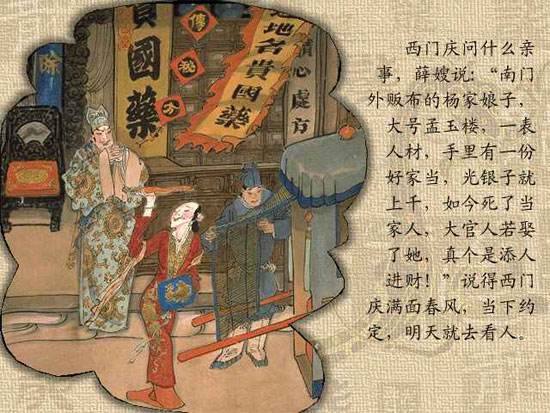 國藥
傳秘
地名貴國藥
心處方
西门庆问什么亲
事，薛嫂说：“南门
外贩布的杨家娘子，
大号孟玉楼，一表
人材，手里有一份
好家当，光银子就
上千，如今死了当
家人，大官人若娶
了她，真个是添人
进财！”说得西门
庆满面春风，当下约
定，明天就去看人。